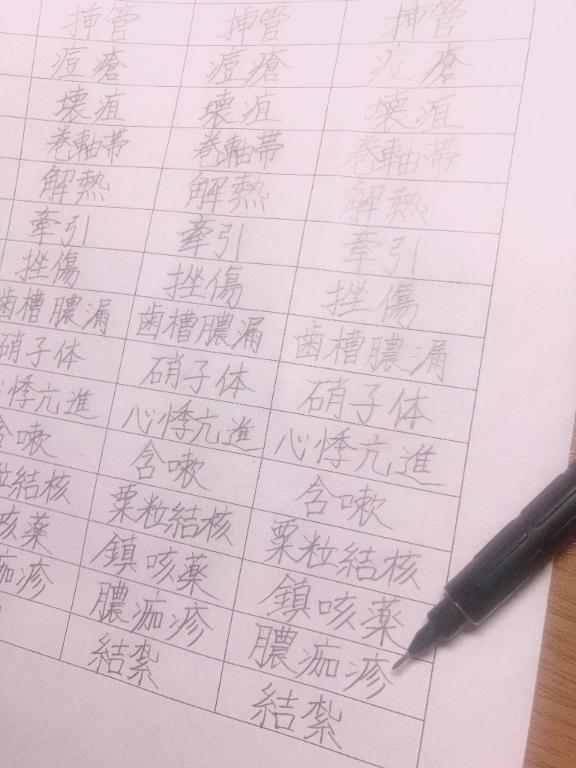 挿管 挿管 挿管
痘瘡 痘瘡 痘瘡
壊疽 壊疽 壊疽
巻軸帯 巻軸帯 巻軸帯
解熱 解熱 解熱
牽引 牽引 牽引
挫傷 挫傷 挫傷
歯槽膿漏 歯槽膿漏 歯槽膿漏
硝子体 硝子体 硝子体
心悸亢進 心悸亢進 心悸亢進
含嗽 含嗽 含嗽
粒結核 粟粒結核 粟粒結核
咳薬 鎮咳薬 鎮咳薬
痂疹 膿痂疹 膿痂疹
結紮 結紮